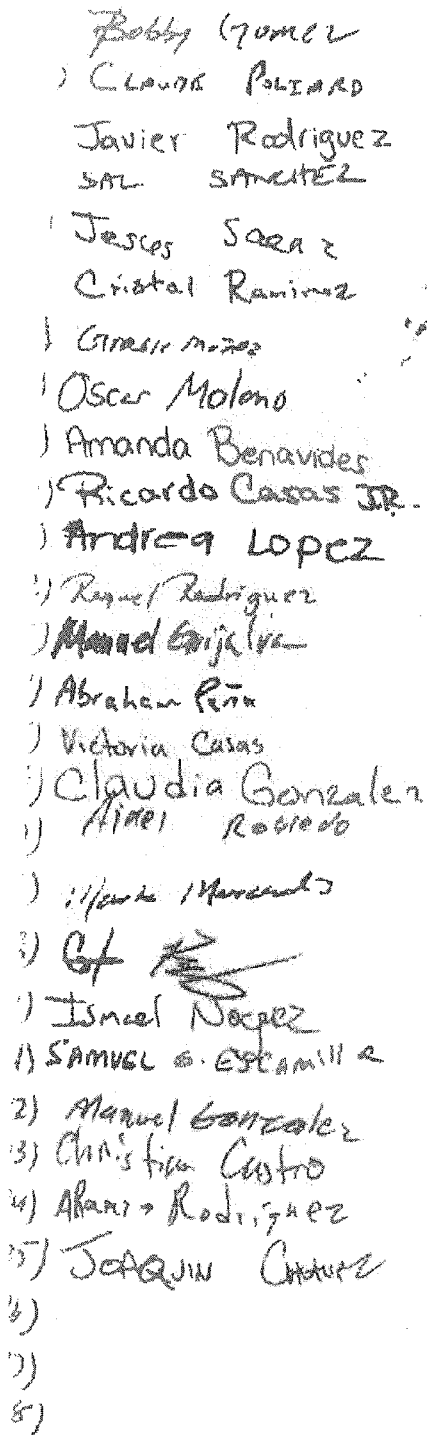 Bobby Gomez
) CLAUDE POLIARD
Javier Rodriguez
SAL SANCHEZ
Jesus
Cristal Ramirez
)
) Oscar Moleno
) Amanda Benavides
) Ricardo Casas JR.
) Andrea Lopez
) Raquel Rodriguez
) Manuel Grijalva
) Abraham Peña
) Victoria Casas
) Claudia Gonzalez
) Robledo
)
)
) Ismael
1) SAMUEL G. ESCAMILLA
2) Manuel Gonzalez
3) Christian Castro
4) Rodriguez
5) JOAQUIN CHAVEZ
6)
7)
8)